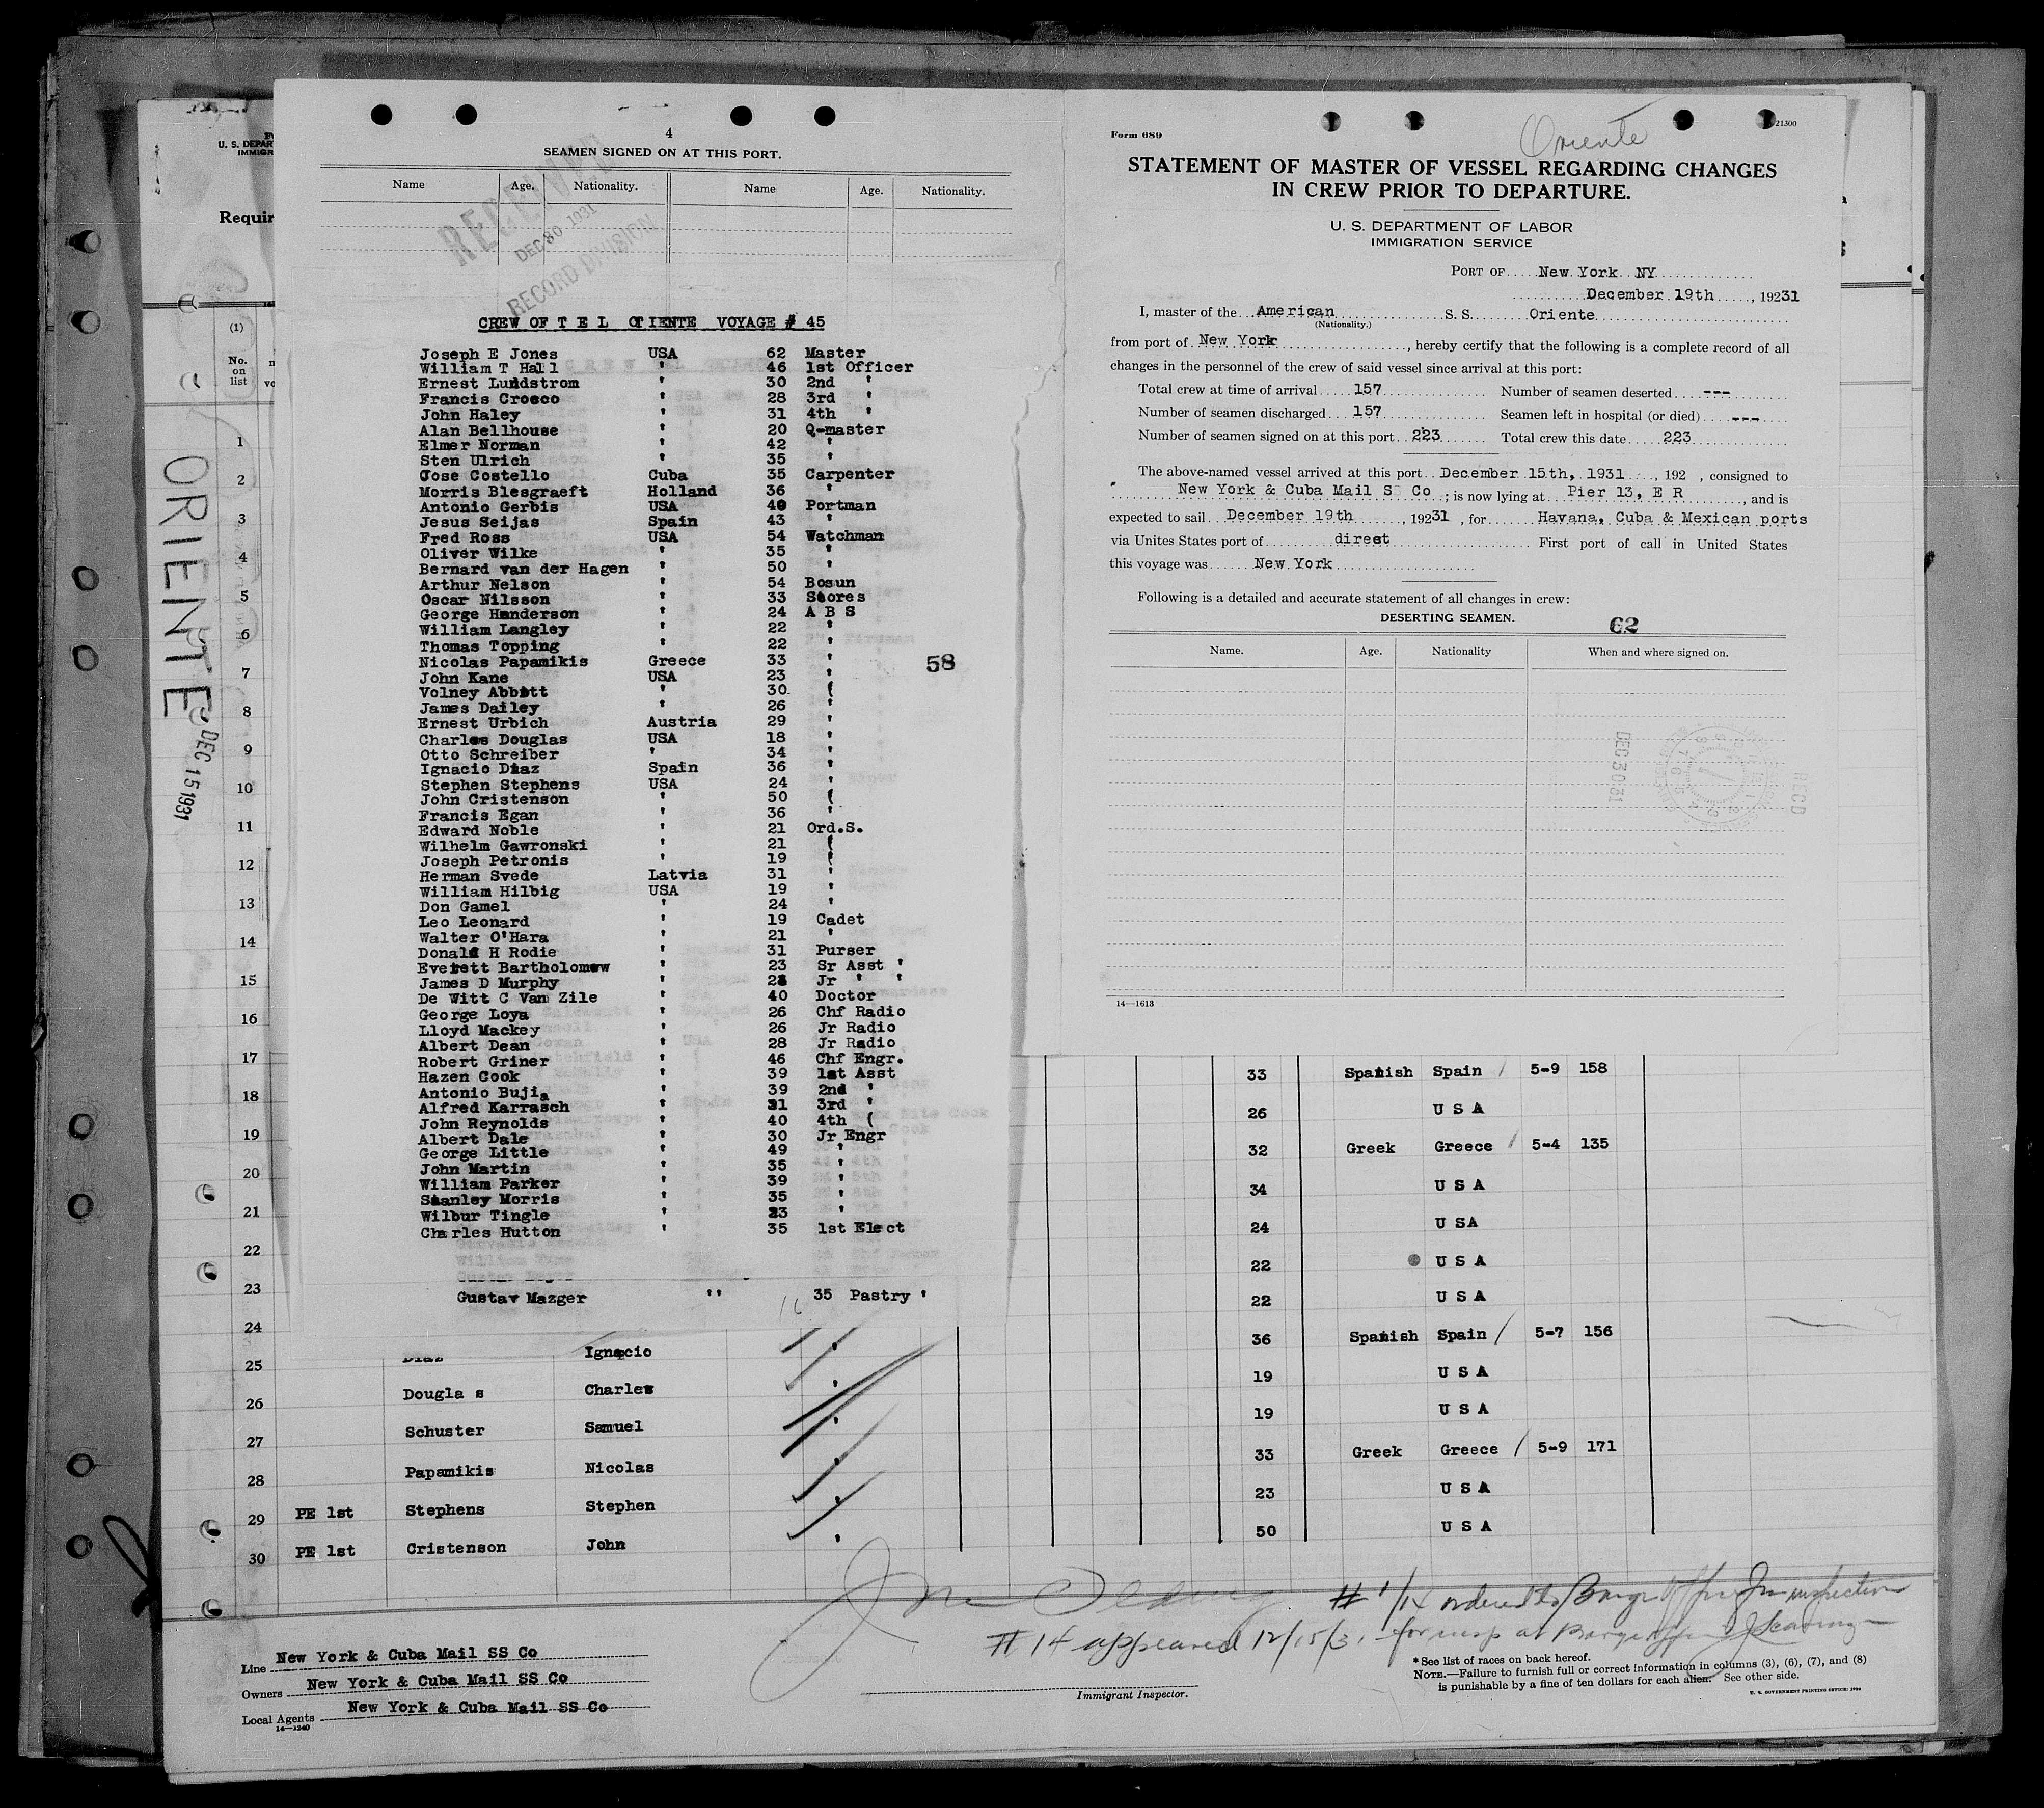 4
SEAMEN SIGNED ON AT THIS PORT.
Name Age. Nationality. Name Age. Nationality.
RECEIVED
DEC 30 1931
RECORD DIVISION
CREW OF T E L ORIENTE VOYAGE # 45
Joseph E Jones USA 62 Master
William T Hall ' 46 1st Officer
Ernest Lundstrom ' 30 2nd '
Francis Crocco ' 28 3rd '
John Haley ' 31 4th '
Alan Bellhouse ' 20 Q-master
Elmer Norman ' 42 '
Sten Ulrich ' 35 '
Jose Costello Cuba 35 Carpenter
Morris Blesgraeft Holland 36 '
Antonio Gerbis USA 40 Portman
Jesus Seijas Spain 43 '
Fred Ross USA 54 Watchman
Oliver Wilke ' 35 '
Bernard van der Hagen ' 50 '
Arthur Nelson ' 54 Bosun
Oscar Nilsson ' 33 Stores
George Handerson ' 24 A B S
William Langley ' 22 '
Thomas Topping ' 22 '
Nicolas Papamikis Greece 33 '
58
John Kane USA 23 '
Volney Abbott ' 30 (
James Dailey ' 26 '
Ernest Urbich Austria 29 '
Charles Douglas USA 18 '
Otto Schreiber ' 34 '
Ignacio Diaz Spain 36 '
Stephen Stephens USA 24 '
John Cristenson ' 50 (
Francis Egan ' 36 '
Edward Noble ' 21 Ord.S.
Wilhelm Gawronski ' 21 (
Joseph Petronis ' 19 (
Herman Svede Latvia 31 '
William Hilbig USA 19 '
Don Gamel ' 24 '
Leo Leonard ' 19 Cadet
Walter O'Hara ' 21 '
Donald H Rodie ' 31 Purser
Everett Bartholomew ' 23 Sr Asst '
James D Murphy ' Jr ' '
De Witt C Van Zile ' 40 Doctor
George Loya ' 26 Chf Radio
Lloyd Mackey ' 26 Jr Radio
Albert Dean ' 28 Jr Radio
Robert Griner ' 46 Chf Engr.
Hazen Cook ' 39 1st Asst
Antonio Bujia ' 39 2nd '
Alfred Karrasch ' 31 3rd '
John Reynolds ' 40 4th (
Albert Dale ' 30 Jr Engr
George Little ' 49 '
John Martin ' 35 '
William Parker ' 39 '
Stanley Morris ' 35 '
Wilbur Tingle ' 33 '
Charles Hutton ' 35 1st Elect
Gustav Mazger '' 35 Pastry '
16
Form 689
Oriente
21300
STATEMENT OF MASTER OF VESSEL REGARDING CHANGES
IN CREW PRIOR TO DEPARTURE.
U. S. DEPARTMENT OF LABOR
IMMIGRATION SERVICE
PORT OF New York NY
December 19th, 19231
I, master of the American S. S. Oriente
(Nationality.)
from port of New York, hereby certify that the following is a complete record of all
changes in the personnel of the crew of said vessel since arrival at this port:
Total crew at time of arrival 157 Number of seamen deserted ---
Number of seamen discharged 157 Seamen left in hospital (or died) ---
Number of seamen signed on at this port 223 Total crew this date 223
The above-named vessel arrived at this port December 15th, 1931, 192 , consigned to
New York & Cuba Mail S S Co; is now lying at Pier 13, E R, and is
expected to sail December 19th, 19231, for Havana, Cuba & Mexican ports
via Unites States port of direct First port of call in United States
this voyage was New York
Following is a detailed and accurate statement of all changes in crew:
DESERTING SEAMEN.
62
Name. Age. Nationality When and where signed on.
DEC 30 31
REC'D
14—1613
U. S. DEPAR
IMMIGR
Requir
(1)
No.
on
list
ORIENTE
DEC 15 1931
1
2
3
4
5
6
7
8
9
10
11
12
13
14
15
16
17
18
19
20
21
22
23
24
25
26
27
28
29
30
33 Spanish Spain / 5-9 158
26 U S A
32 Greek Greece / 5-4 135
34 U S A
24 U SA
22 U S A
22 U S A
36 Spanish Spain / 5-7 156
19 U S A
19 U S A
33 Greek Greece / 5-9 171
23 U S A
50 U S A
Diaz Ignacio
Dougla s Charles
Schuster Samuel
Papamikis Nicolas
PE 1st Stephens Stephen
PE 1st Cristenson John
# 1/14 ordered to Barge Office for inspection
# 14 appeared 12/15/31 for insp at Barge Office
Line New York & Cuba Mail SS Co
Owners New York & Cuba Mail SS Co
Local Agents New York & Cuba Mail SS Co
14—1240
Immigrant Inspector.
* See list of races on back hereof.
NOTE.—Failure to furnish full or correct information in columns (3), (6), (7), and (8)
is punishable by a fine of ten dollars for each alien. See other side.
U. S. GOVERNMENT PRINTING OFFICE: